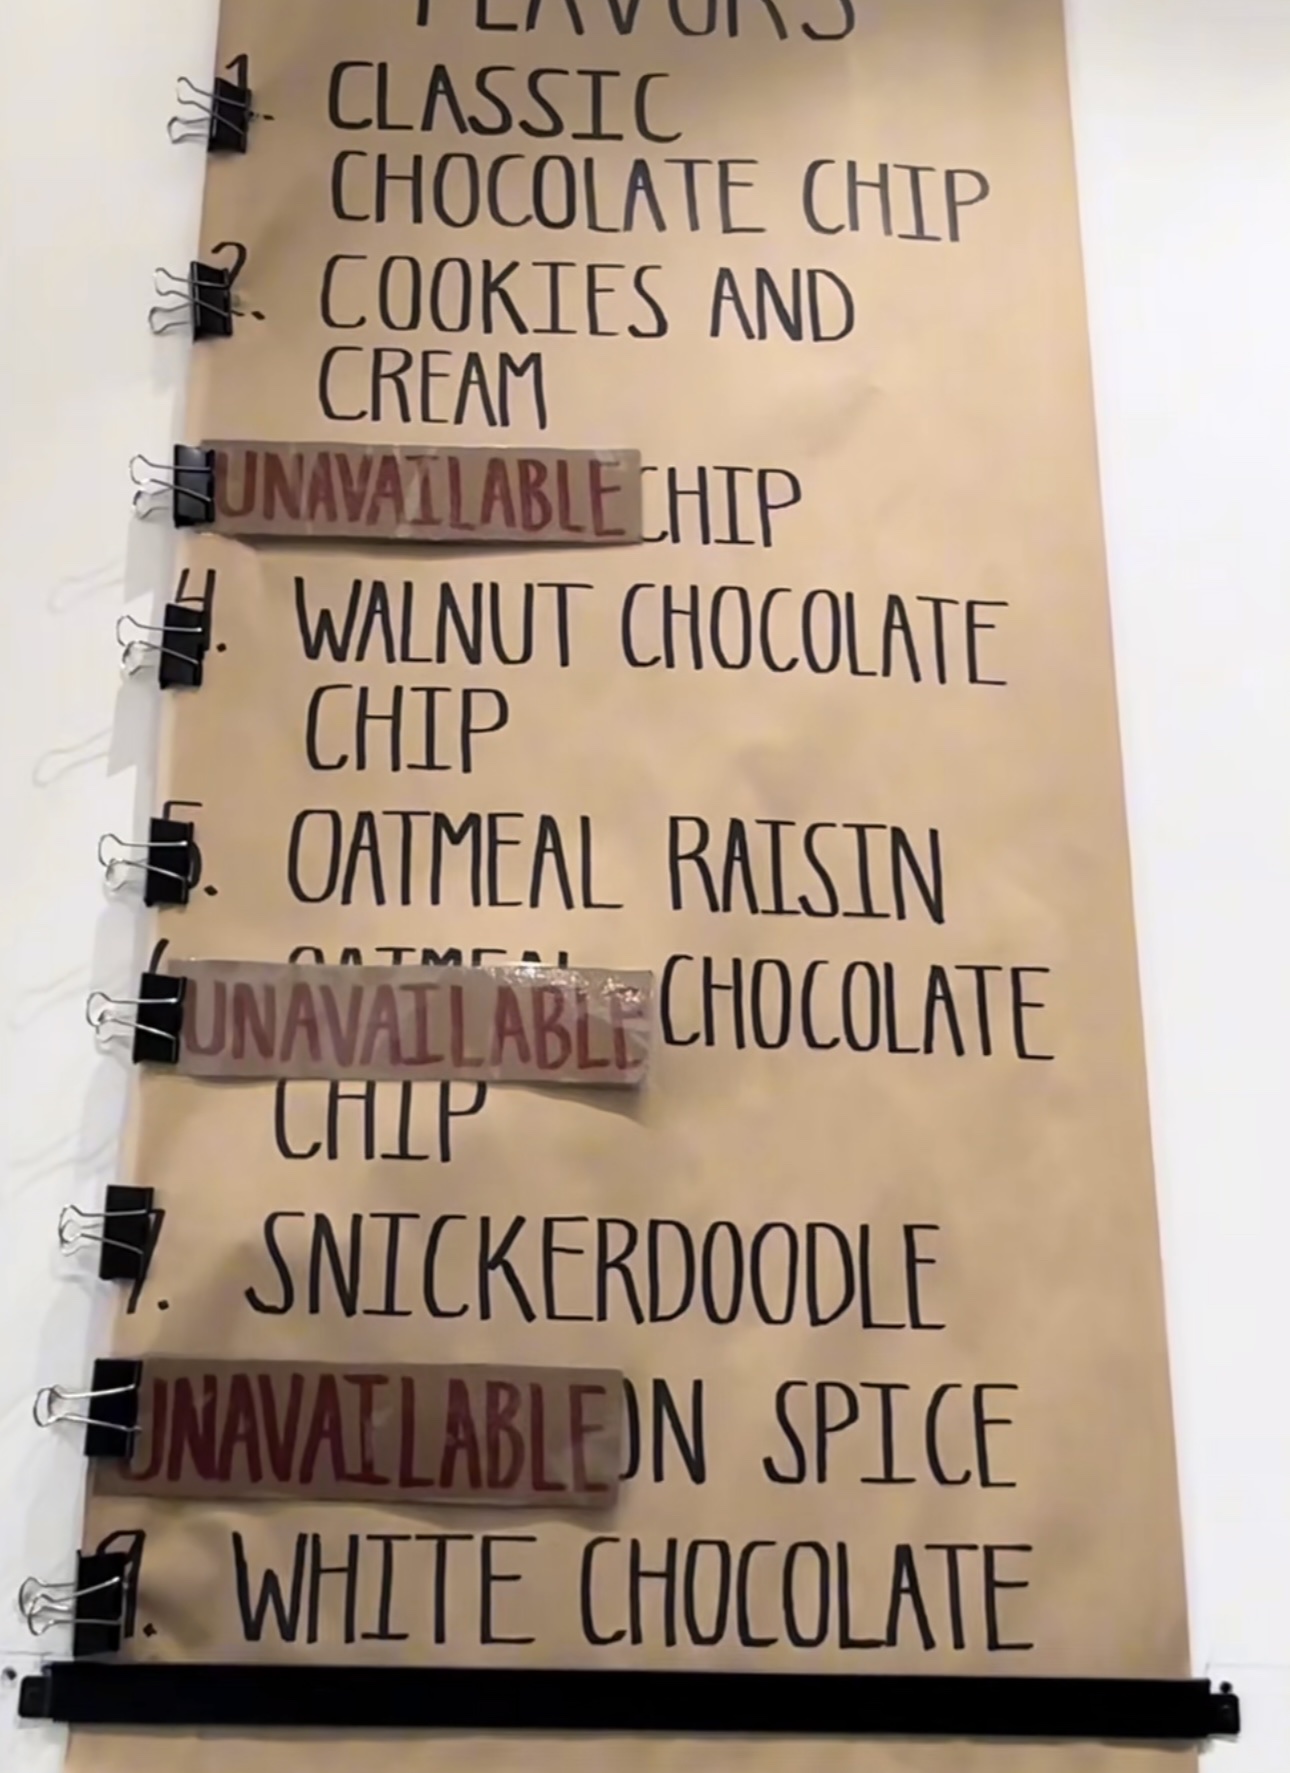 FLAVORS
1. CLASSIC
CHOCOLATE CHIP
2. COOKIES AND
CREAM
UNAVAILABLE CHIP
4. WALNUT CHOCOLATE
CHIP
5. OATMEAL RAISIN
6 OATMEAL CHOCOLATE
UNAVAILABLE
CHIP
7. SNICKERDOODLE
UNAVAILABLE ON SPICE
9. WHITE CHOCOLATE